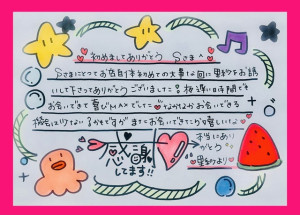 初めましてありがとう Sさま^
Sさまにとってお店自体も初めての大事な回に里紗をお誘
いして下さってありがとうございました!夜遅い時間でも
お会いできて喜びMAXでしたなかなかお会いできる
機会は少ないるかもですがまたお会いできたら嬉しいな
感謝
してます!!
本当にあり
がとう
里紗より